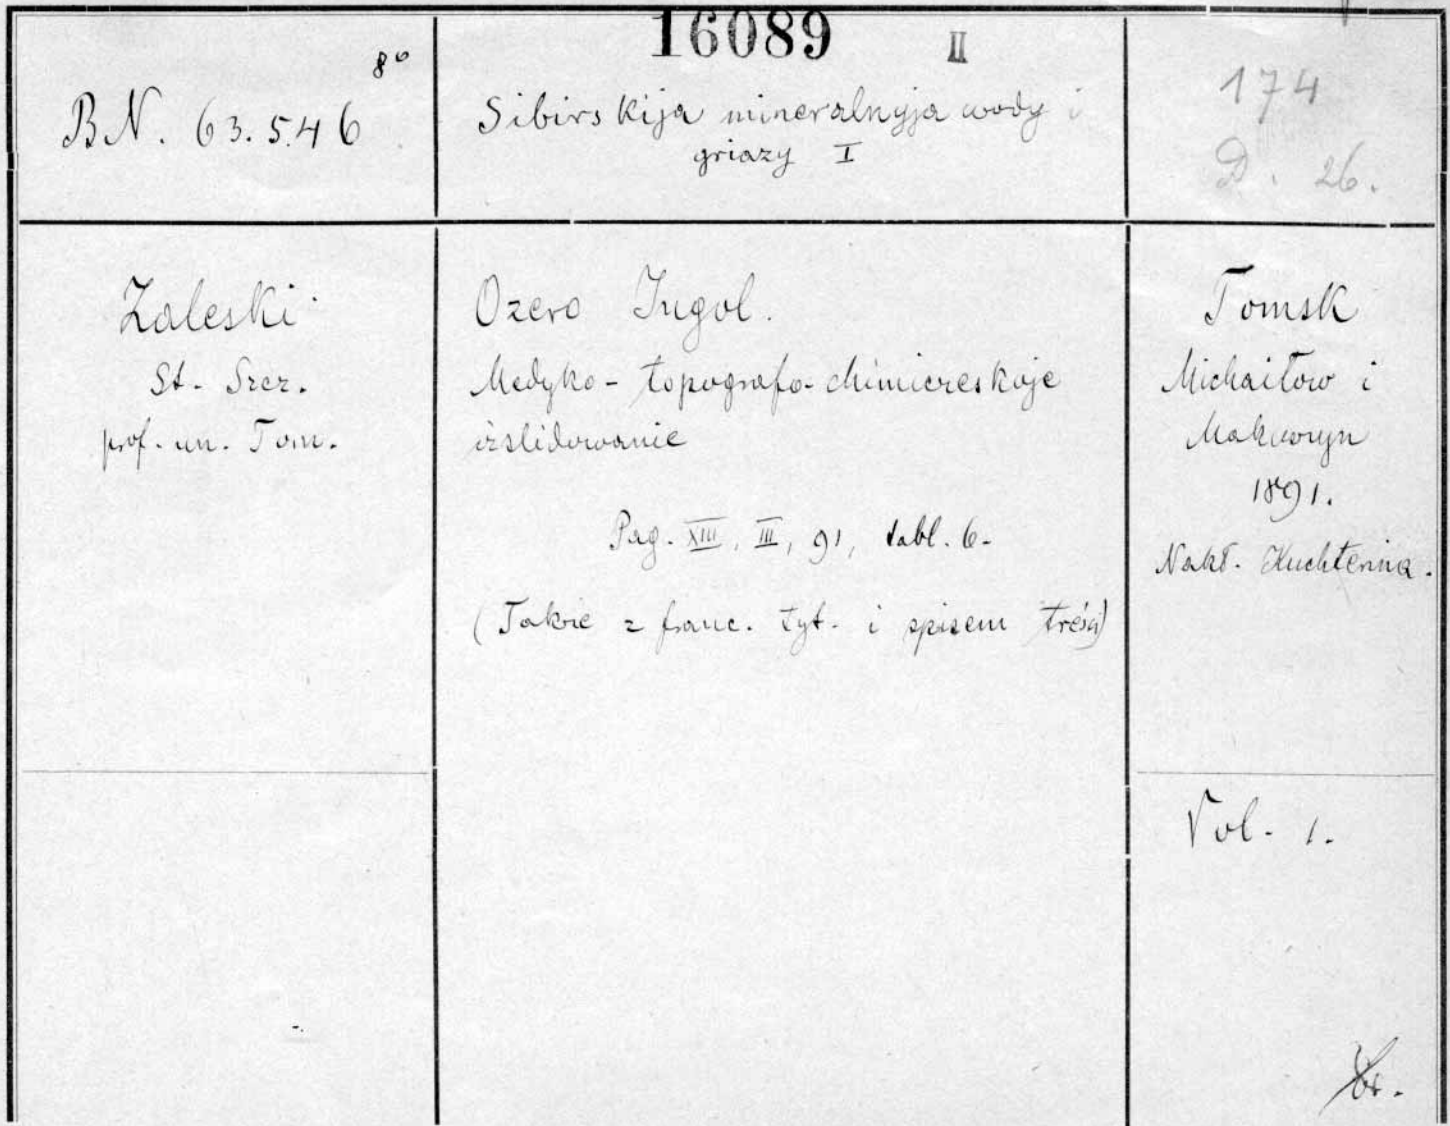 16089 II
8°
BN. 63.5.46
Sibirskija mineralnyja wody i
griazy I
174
D. 26.
Zaleski
St. Szcz.
prof. un. Tom.
Ozero Ingol.
Medyko-topografo-chimiczeskoje
izslidowanie
Pag. XIII, III, 91, tabl. 6.
(Także z franc. tyt. i spisem treści)
Tomsk
Michaiłow i
Makuszyn
1891.
Nakł. Kuchterina.
Vol. 1.